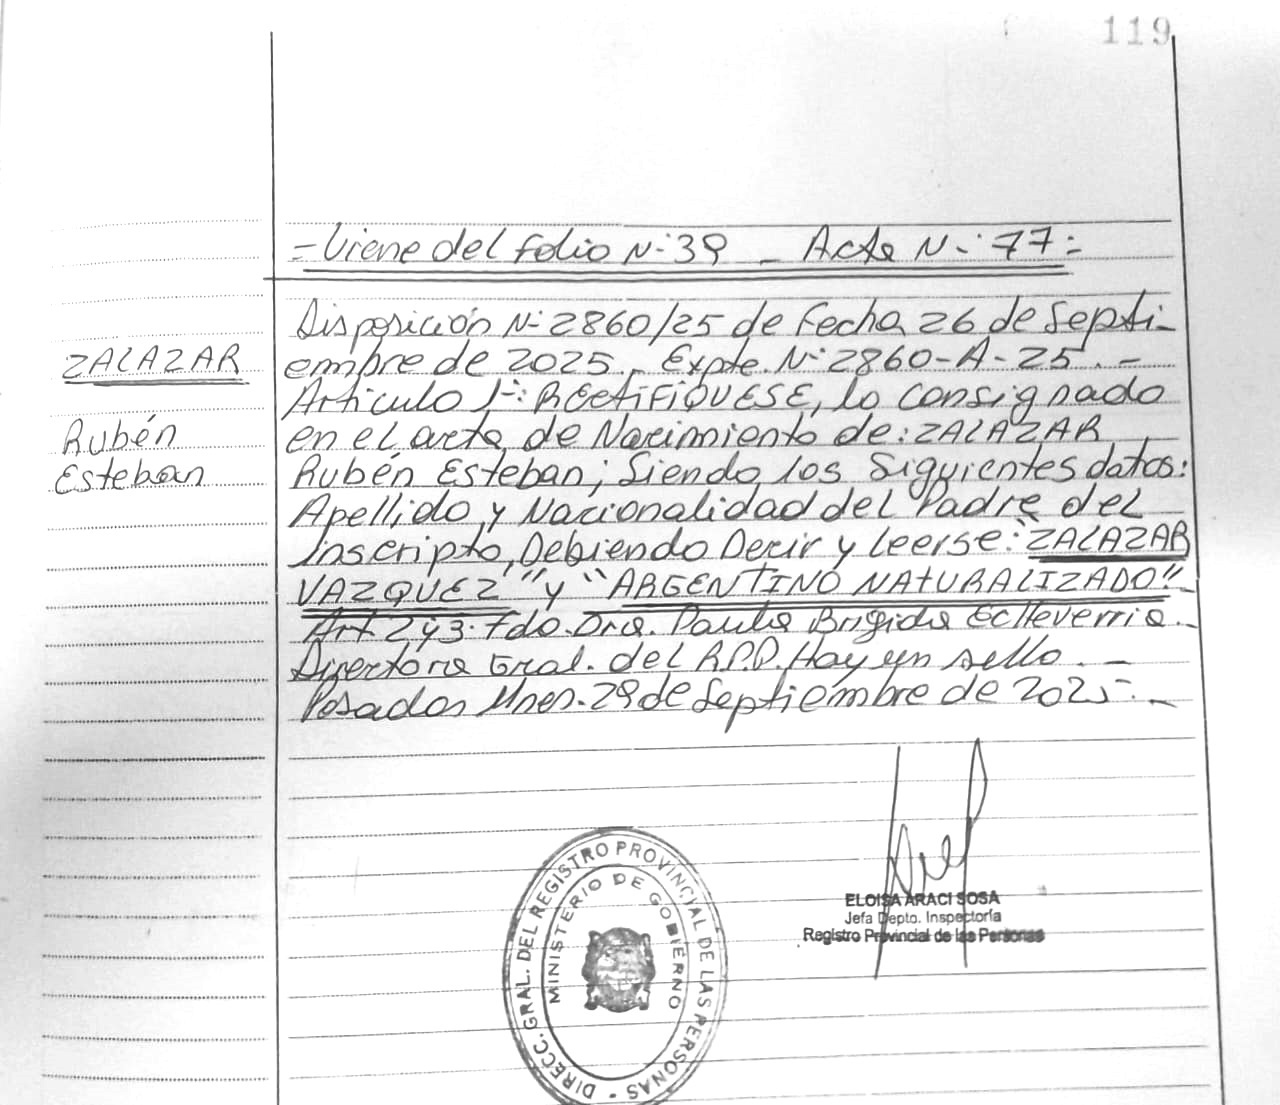 119
= Viene del folio N-: 39 _ Acta N-: 77 =
ZALAZAR
Rubén
Esteban
Disposición N- 2860/25 de fecha 26 de Septi-
embre de 2025_ Expte. N-: 2860-A-25._
Artículo 1-: RECTIFIQUESE, lo consignado
en el acta de Nacimiento de: ZALAZAR
Rubén Esteban; Siendo los Siguientes datos:
Apellido y Nacionalidad del Padre del
Inscripto, Debiendo Decir y leerse: "ZALAZAR
VAZQUEZ" y "ARGENTINO NATURALIZADO"_
Art 2 y 3. Fdo. Dra. Paula Brigida Echeverria._
Directora Gral. del R.P.P. Hay un sello._
Posadas Mnes. 29 de Septiembre de 2025-._
ELOISA ARACI SOSA
Jefa Depto. Inspectoría
Registro Provincial de las Personas
DIRECC. GRAL. DEL REGISTRO PROVINCIAL DE LAS PERSONAS -
MINISTERIO DE GOBIERNO